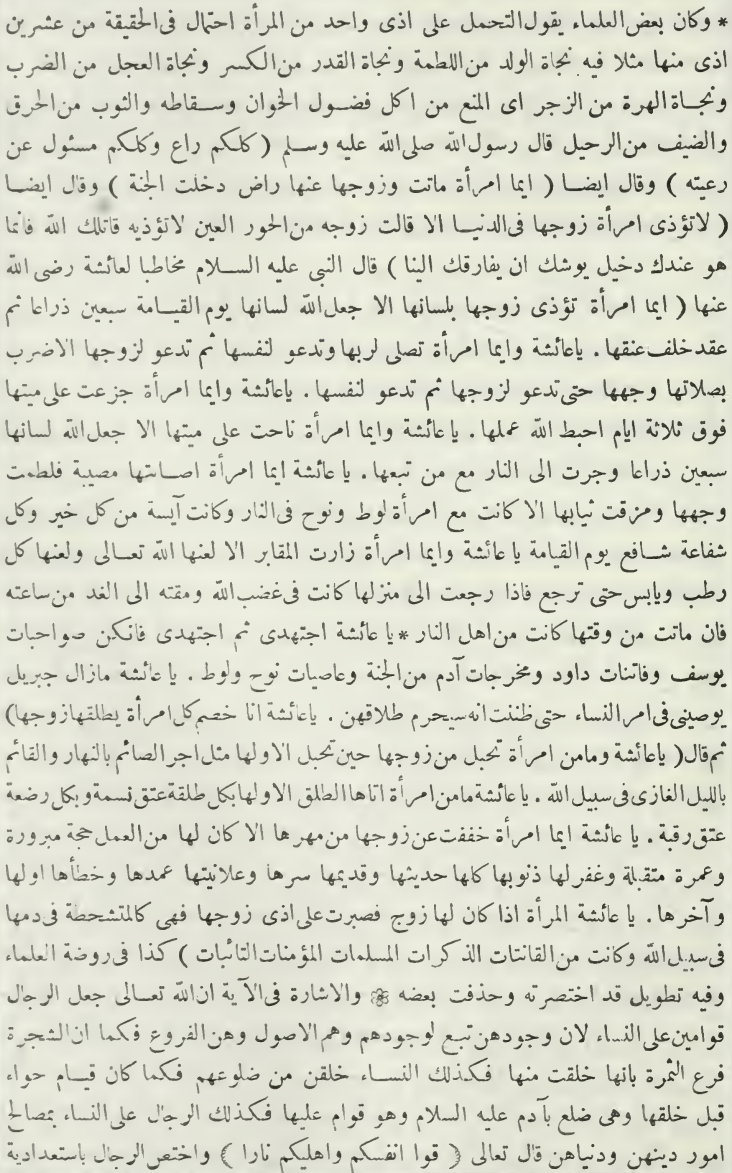 * وكان بعض العلماء يقول التحمل على اذى واحد من المرأة احتمال فى الحقيقة من عشرين
اذى منها مثلا فيه نجاة الولد من اللطمة ونجاة القدر من الكسر ونجاة العجل من الضرب
ونجاة الهرة من الزجر اى المنع من اكل فضول الخوان وسقاطه والثوب من الحرق
والضيف من الرحيل قال رسول الله صلى الله عليه وسلم ( كلكم راع وكلكم مسئول عن
رعيته ) وقال ايضا ( ايما امرأة ماتت وزوجها عنها راض دخلت الجنة ) وقال ايضا
( لاتؤذى امرأة زوجها فى الدنيا الا قالت زوجه من الحور العين لاتؤذيه قاتلك الله فانما
هو عندك دخيل يوشك ان يفارقك الينا ) قال النبى عليه السلام مخاطبا لعائشة رضى الله
عنها ( ايما امرأة تؤذى زوجها بلسانها الا جعل الله لسانها يوم القيامة سبعين ذراعا ثم
عقد خلف عنقها . ياعائشة وايما امرأة تصلى لربها وتدعو لنفسها ثم تدعو لزوجها الاضرب
بصلاتها وجهها حتى تدعو لزوجها ثم تدعو لنفسها . ياعائشة وايما امرأة جزعت على ميتها
فوق ثلاثة ايام احبط الله عملها . يا عائشة وايما امرأة ناحت على ميتها الا جعل الله لسانها
سبعين ذراعا وجرت الى النار مع من تبعها . يا عائشة ايما امرأة اصابتها مصيبة فلطمت
وجهها ومزقت ثيابها الا كانت مع امرأة لوط ونوح فى النار وكانت آيسة من كل خير وكل
شفاعة شافع يوم القيامة يا عائشة وايما امرأة زارت المقابر الا لعنها الله تعالى ولعنها كل
رطب ويابس حتى ترجع فاذا رجعت الى منزلها كانت فى غضب الله ومقته الى الغد من ساعته
فان ماتت من وقتها كانت من اهل النار * يا عائشة اجتهدى ثم اجتهدى فانكن صواحبات
يوسف وفاتنات داود ومخرجات آدم من الجنة وعاصيات نوح ولوط . يا عائشة مازال جبريل
يوصينى فى امر النساء حتى ظننت انه سيحرم طلاقهن . ياعائشة انا خصم كل امرأة يطلقها زوجها)
ثم قال ( ياعائشة ومامن امرأة تحبل من زوجها حين تحبل الا ولها مثل اجر الصائم بالنهار والقائم
بالليل الغازى فى سبيل الله . يا عائشة مامن امرأة اتاها الطلق الا ولها بكل طلقة عتق نسمة وبكل رضعة
عتق رقبة . يا عائشة ايما امرأة خففت عن زوجها من مهرها الا كان لها من العمل حجة مبرورة
وعمرة متقبلة وغفر لها ذنوبها كلها حديثها وقديمها سرها وعلانيتها عمدها وخطأها اولها
وآخرها . يا عائشة المرأة اذا كان لها زوج فصبرت على اذى زوجها فهى كالمتشحطة فى دمها
فى سبيل الله وكانت من القانتات الذكرات المسلمات المؤمنات التائبات ) كذا فى روضة العلماء
وفيه تطويل قد اختصرته وحذفت بعضه ۞ والاشارة فى الآية ان الله تعالى جعل الرجال
قوامين على النساء لان وجودهن تبع لوجودهم وهم الاصول وهن الفروع فكما ان الشجرة
فرع الثمرة بانها خلقت منها فكذلك النساء خلقن من ضلوعهم فكما كان قيام حواء
قبل خلقها وهى ضلع بآدم عليه السلام وهو قوام عليها فكذلك الرجال على النساء بمصالح
امور دينهن ودنياهن قال تعالى ﴿ قوا انفسكم واهليكم نارا ﴾ واختص الرجال باستعدادية